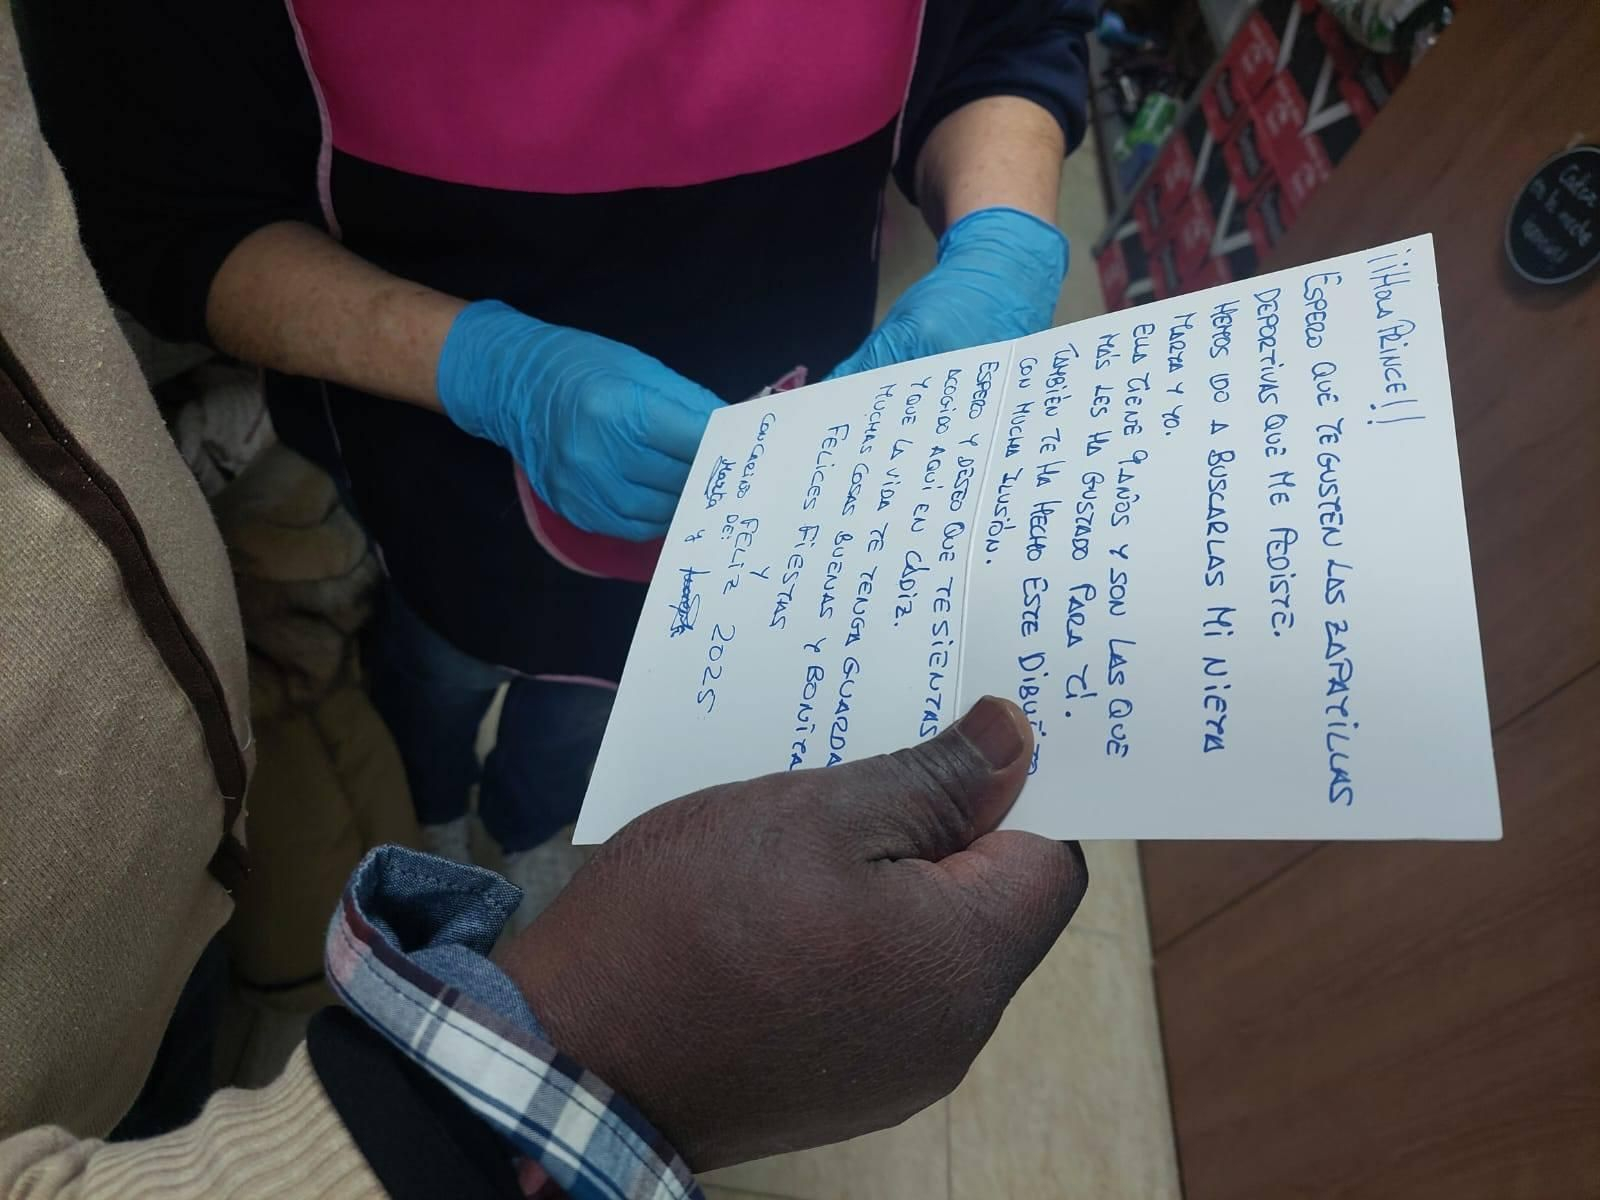 ¡¡¡HOLA PRINCE!!
ESPERO QUE TE GUSTEN LAS ZAPATILLAS
DEPORTIVAS QUE ME PEDISTE.
HEMOS IDO A BUSCARLAS MI NIETA
MARTA Y YO.
ELLA TIENE 9 AÑOS Y SON LAS QUE
MÁS LES HA GUSTADO PARA TÍ.
TAMBIÉN TE HA HECHO ESTE DIBUJITO
CON MUCHA ILUSIÓN.
ESPERO Y DESEO QUE TE SIENTAS
ACOGIDO AQUÍ EN CÁDIZ.
Y QUE LA VIDA TE TENGA GUARDA
MUCHAS COSAS BUENAS Y BONITA
FELICES FIESTAS
Y
FELIZ 2025.
CON CARIÑO DE:
Marta y